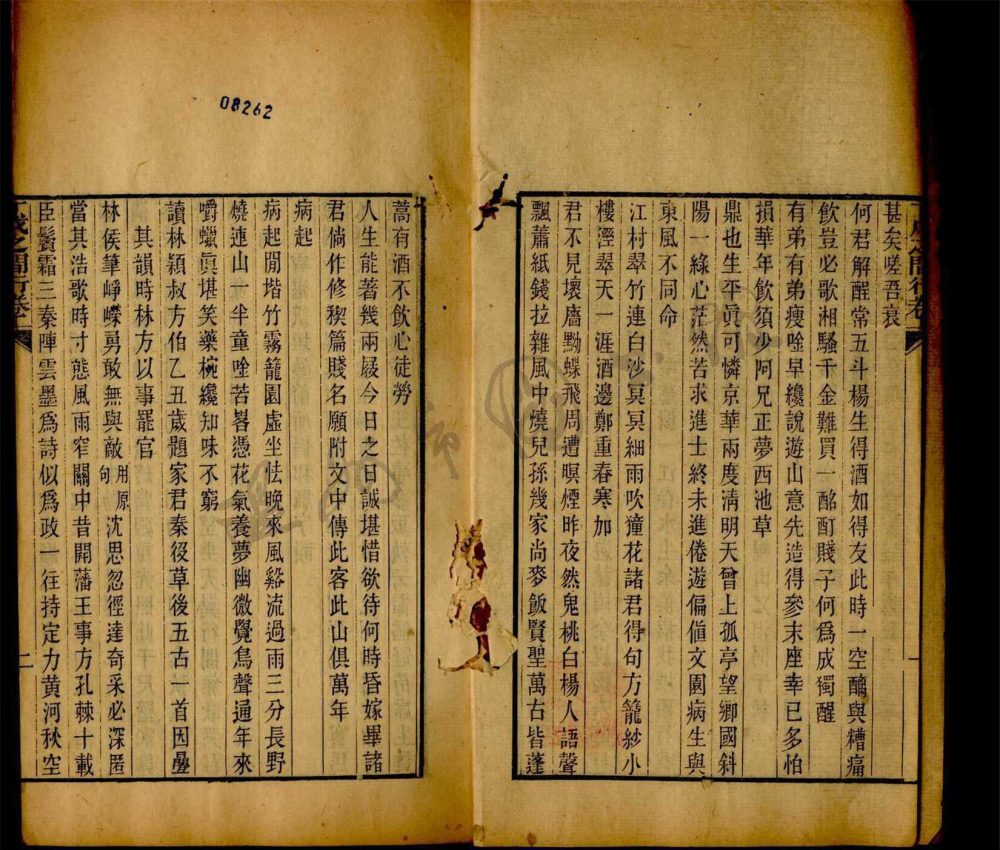 甚矣嗟吾衰
何君解酲常五斗楊生得酒如得友此時一空醹與糟痛
飲豈必歌湘騷千金難買一酩酊賤子何爲成獨醒
有弟有弟瘦唫早纔說遊山意先造得參末座幸已多怕
損華年飲須少阿兄正夢西池草
鼎也生平眞可憐京華兩度淸明天曾上孤亭望鄉國斜
陽一綫心茫然若求進士終未進倦遊偏値文園病生與
東風不同命
江村翠竹連白沙冥冥細雨吹獞花諸君得句方籠紗小
樓溼翠天一涯酒邊鄭重春寒加
君不見壞廧黝蝶飛周遭暝煙昨夜然鬼桃白楊人語聲
飄蕭紙錢拉雜風中燒兒孫幾家尚麥飯賢聖萬古皆蓬
蒿有酒不飲心徒勞
人生能著幾兩屐今日之日誠堪惜欲待何時昏嫁畢諸
君倘作修稧篇賤名願附文中傳此客此山俱萬年
病起
病起閒堦竹霧籠園虛坐怯晚來風谿流過雨三分長野
燒連山一半童唫苦畧憑花氣養夢幽微覺鳥聲通年來
嚼蠟眞堪笑藥椀纔知味不窮
讀林穎叔方伯乙丑歲題家君秦後草後五古一首因疊
其韻時林方以事罷官
林侯筆崢嶸勇敢無與敵用原句沈思忽徑達奇采必深匿
當其浩歌時寸態風雨窄關中昔開藩王事方孔棘十載
臣鬢霜三秦陣雲墨爲詩似爲政一往持定力黄河秋空
一
二
08262